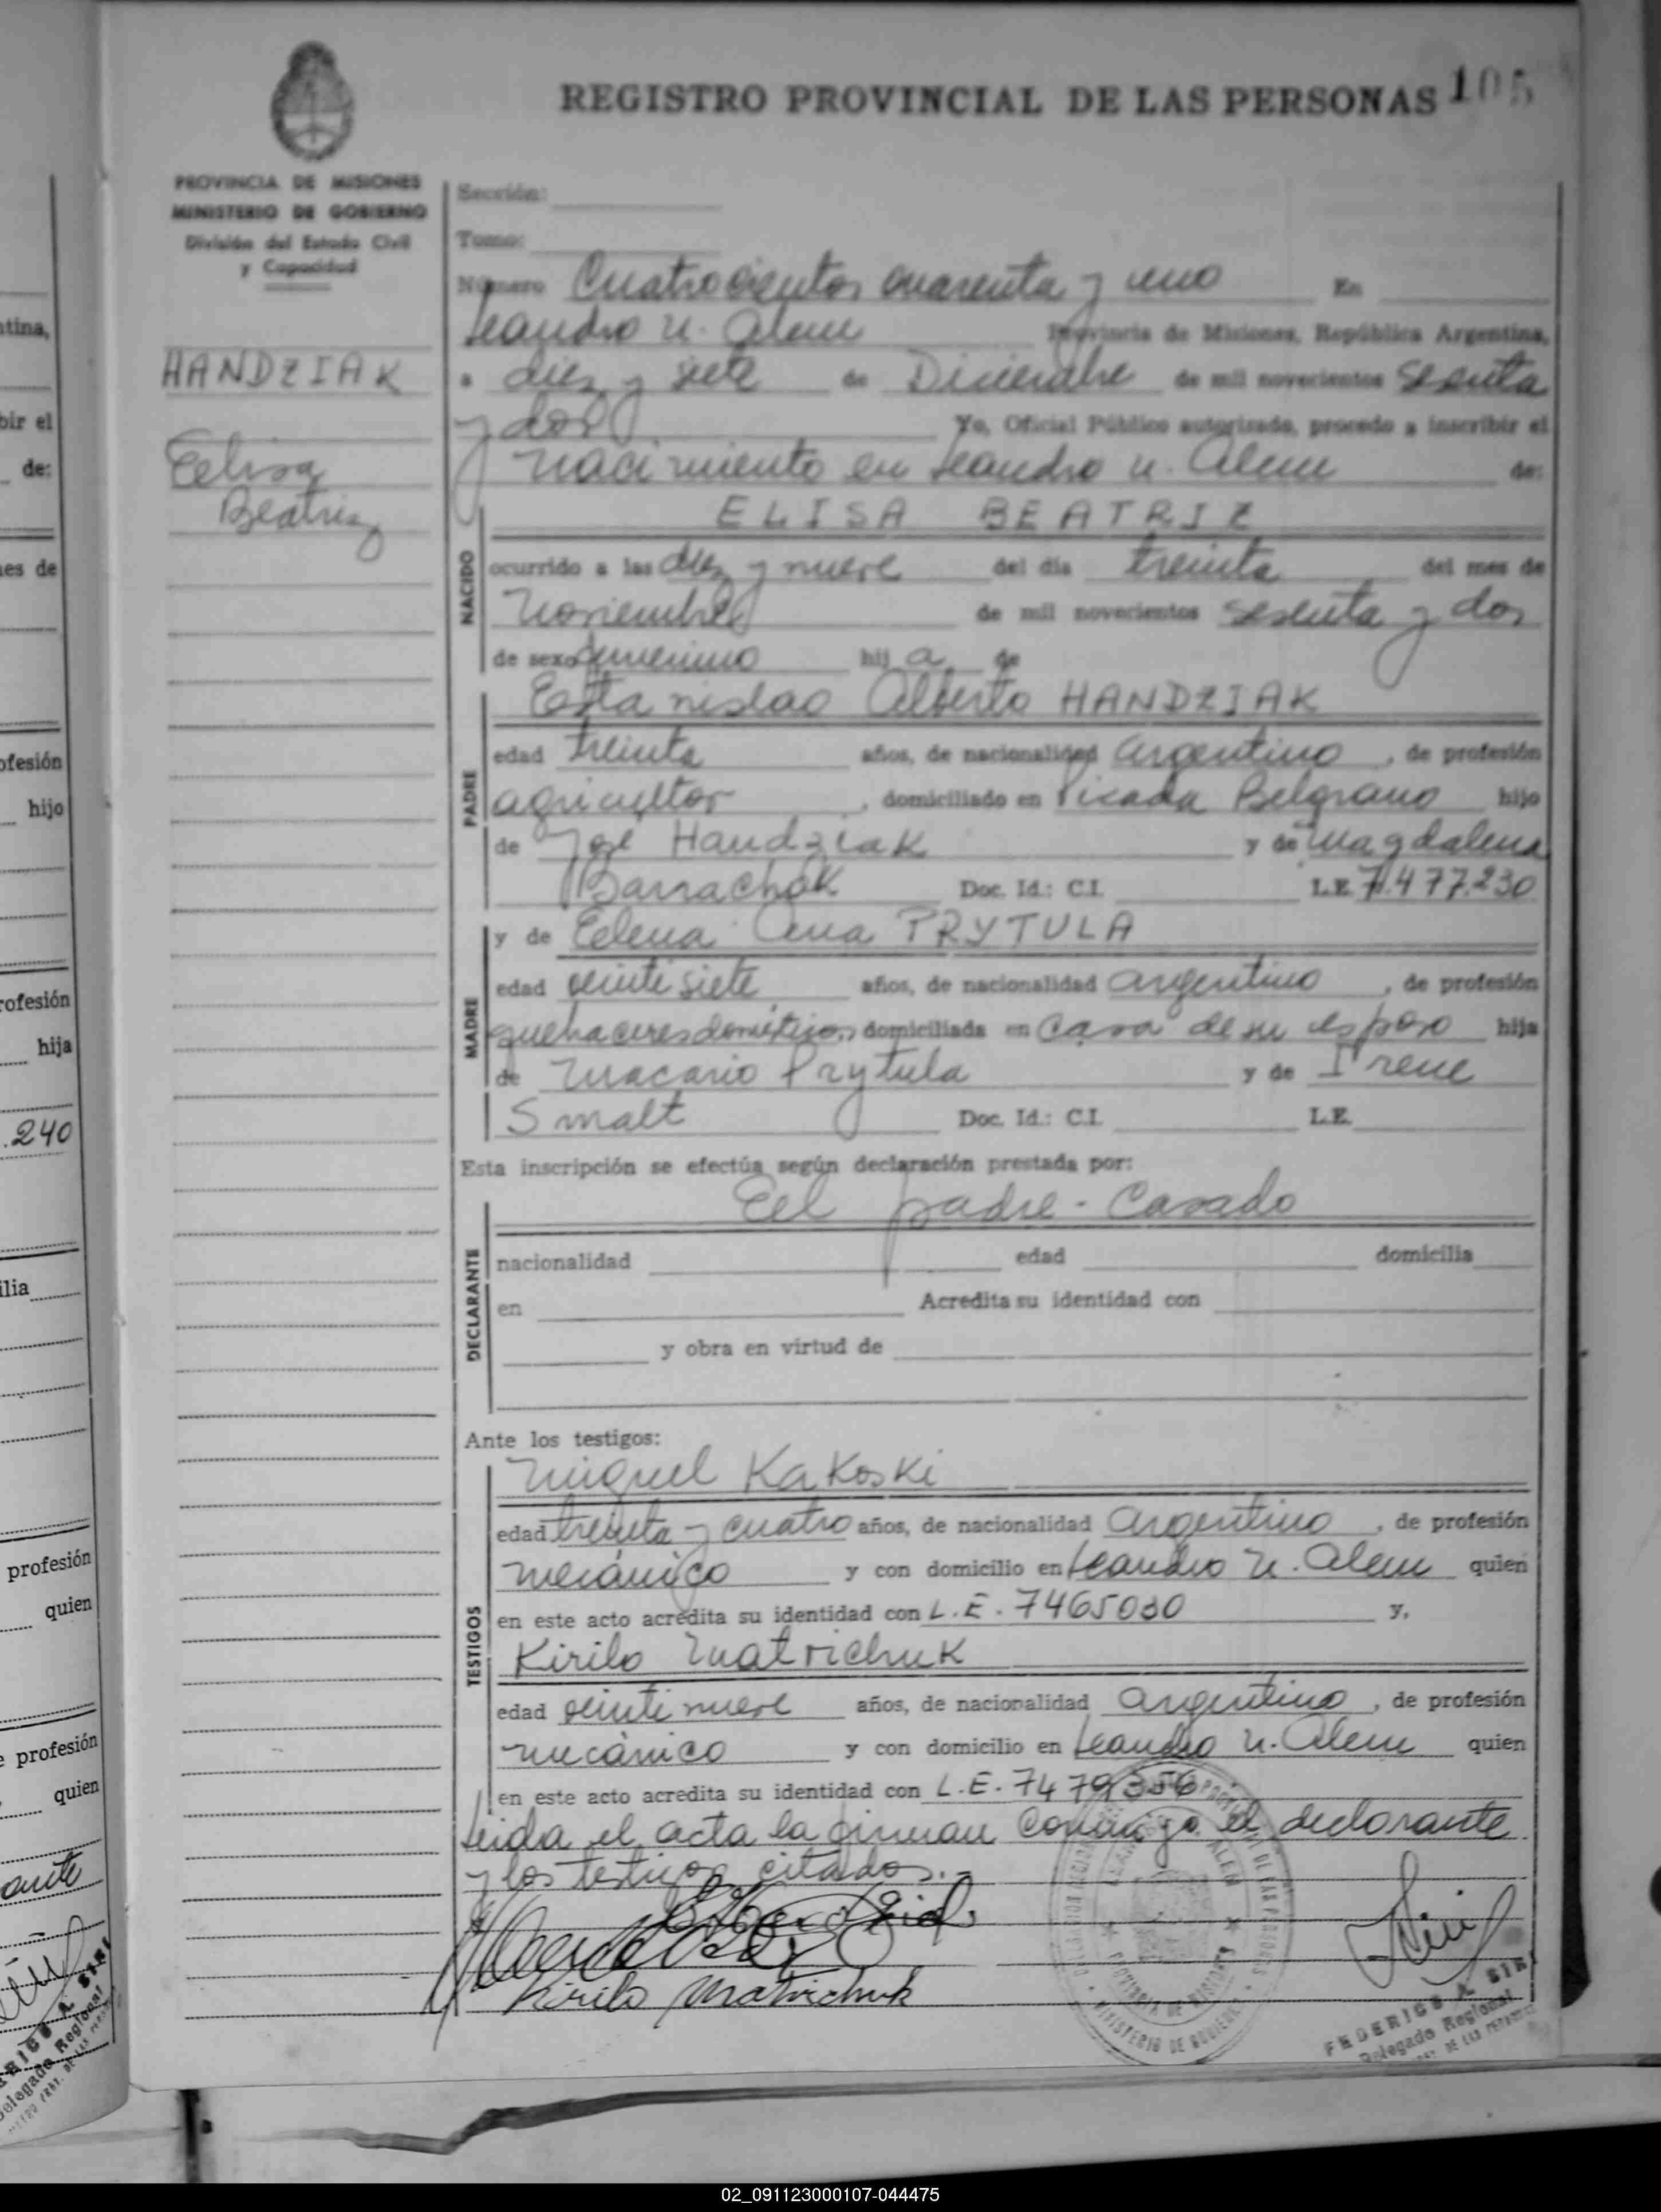 REGISTRO PROVINCIAL DE LAS PERSONAS 105
PROVINCIA DE MISIONES
MINISTERIO DE GOBIERNO
División del Estado Civil
y Capacidad
HANDZIAK
Elisa
Beatriz
Sección:
Tomo:
Número Cuatrocientos cuarenta y uno En
Leandro N. Alem Provincia de Misiones, República Argentina,
a diez y siete de Diciembre de mil novecientos sesenta
y dos Yo, Oficial Público autorizado, procedo a inscribir el
nacimiento en Leandro N. Alem de:
NACIDO
ELISA BEATRIZ
ocurrido a las diez y nueve del día treinta del mes de
Noviembre de mil novecientos sesenta y dos
de sexo femenino hij a de
PADRE
Estanislao Alberto HANDZIAK
edad treinta años, de nacionalidad argentino, de profesión
agricultor, domiciliado en Picada Belgrano hijo
de José Handziak y de Magdalena
Barrachok Doc. Id.: C.I. L.E. 7.477.230
MADRE
y de Elena Ana PRYTULA
edad veinti siete años, de nacionalidad argentino, de profesión
quehaceres domésticos, domiciliada en casa de su esposo hija
de Macario Prytula y de Irene
Smalt Doc. Id.: C.I. L.E.
Esta inscripción se efectúa según declaración prestada por:
DECLARANTE
El padre - Casado
nacionalidad edad domicilia
en Acredita su identidad con
y obra en virtud de
Ante los testigos:
TESTIGOS
Miguel Kakoski
edad treinta y cuatro años, de nacionalidad argentino, de profesión
mecánico y con domicilio en Leandro N. Alem quien
en este acto acredita su identidad con L.E. 7465030 y,
Kirilo Matrichuk
edad veinti nueve años, de nacionalidad argentino, de profesión
mecánico y con domicilio en Leandro N. Alem quien
en este acto acredita su identidad con L.E. 7479356
Leida el acta la firman conmigo el declarante
y los testigos citados.-
Kirilo Matrichuk
FEDERICO A.
Delegado Regional
PROVINCIA DE MISIONES
MINISTERIO DE GOBIERNO
tina,
bir el
de:
es de
ofesión
hijo
rofesión
hija
.240
ilia
profesión
quien
e profesión
quien
ante
02_091123000107-044475